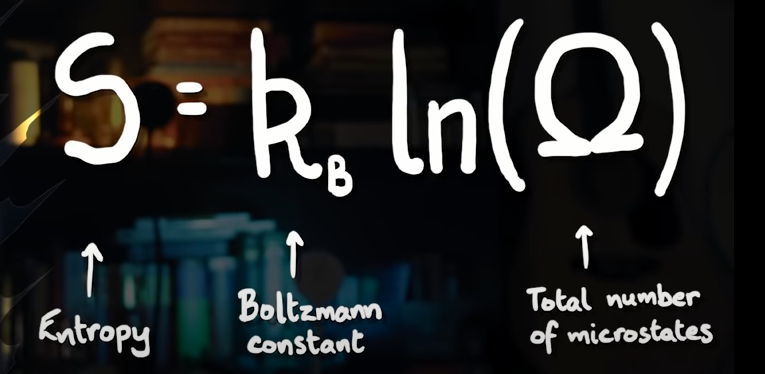 S = k_B ln(Ω)
Entropy
Boltzmann
constant
Total number
of microstates